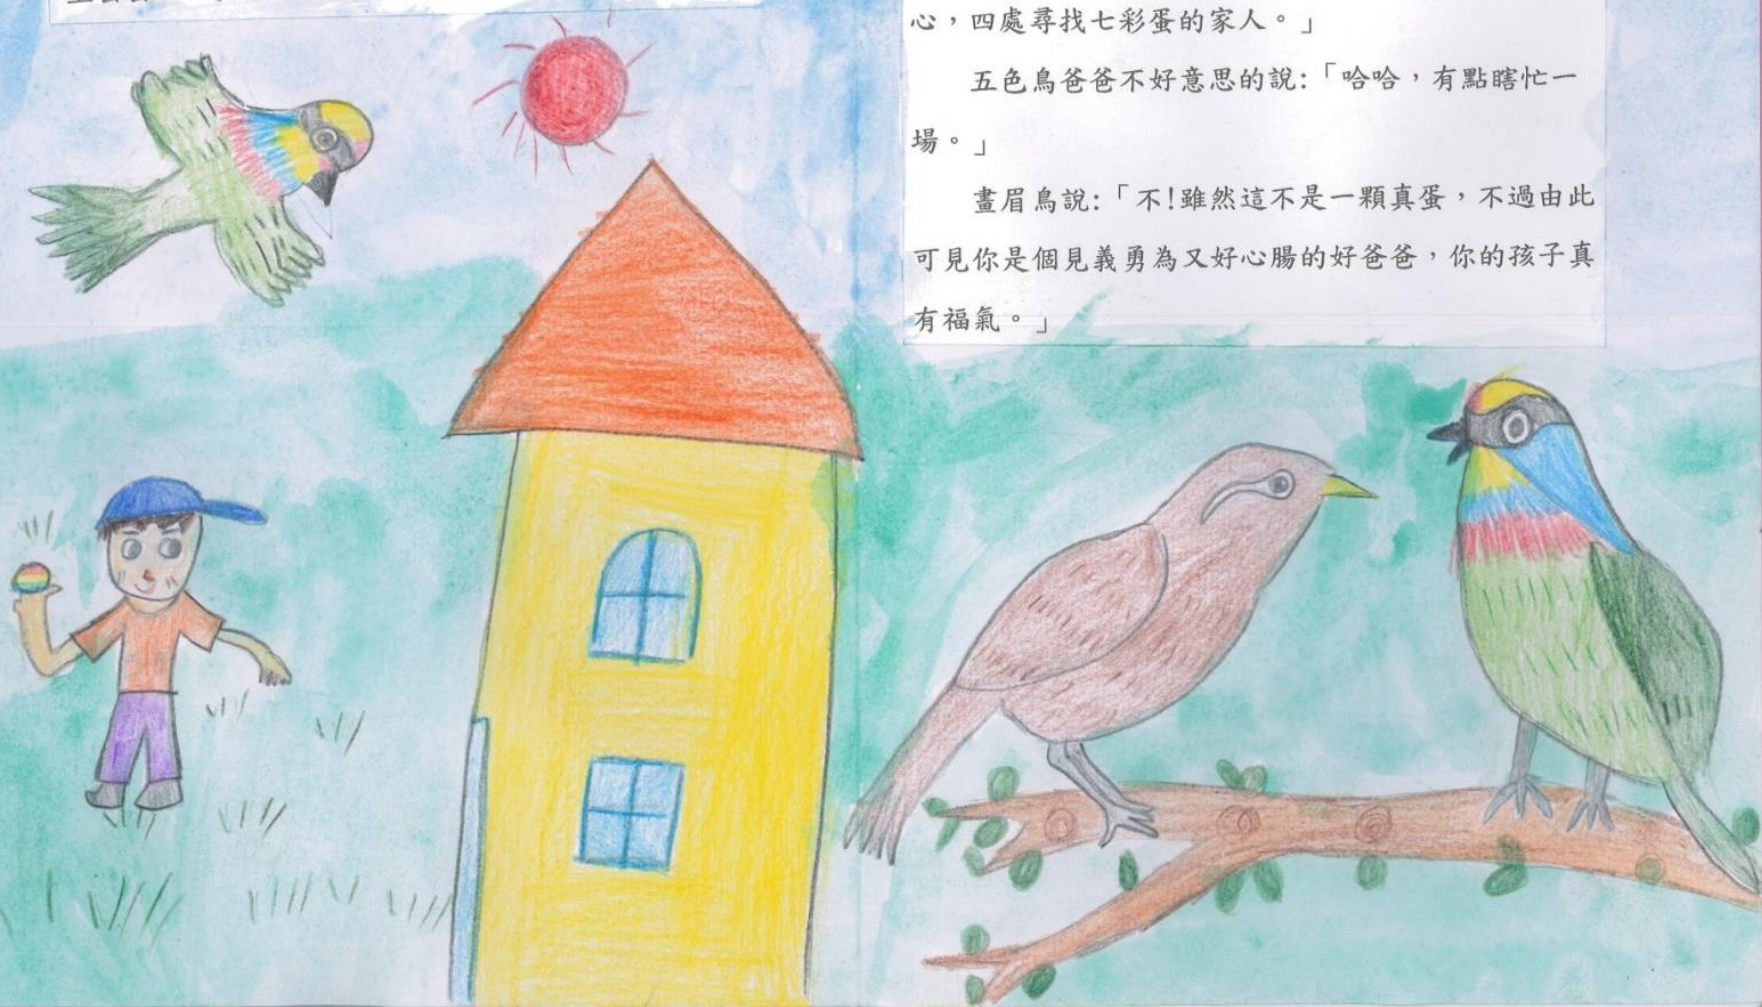 心，四處尋找七彩蛋的家人。」
五色鳥爸爸不好意思的說:「哈哈，有點瞎忙一
場。」
畫眉鳥說:「不!雖然這不是一顆真蛋，不過由此
可見你是個見義勇為又好心腸的好爸爸，你的孩子真
有福氣。」